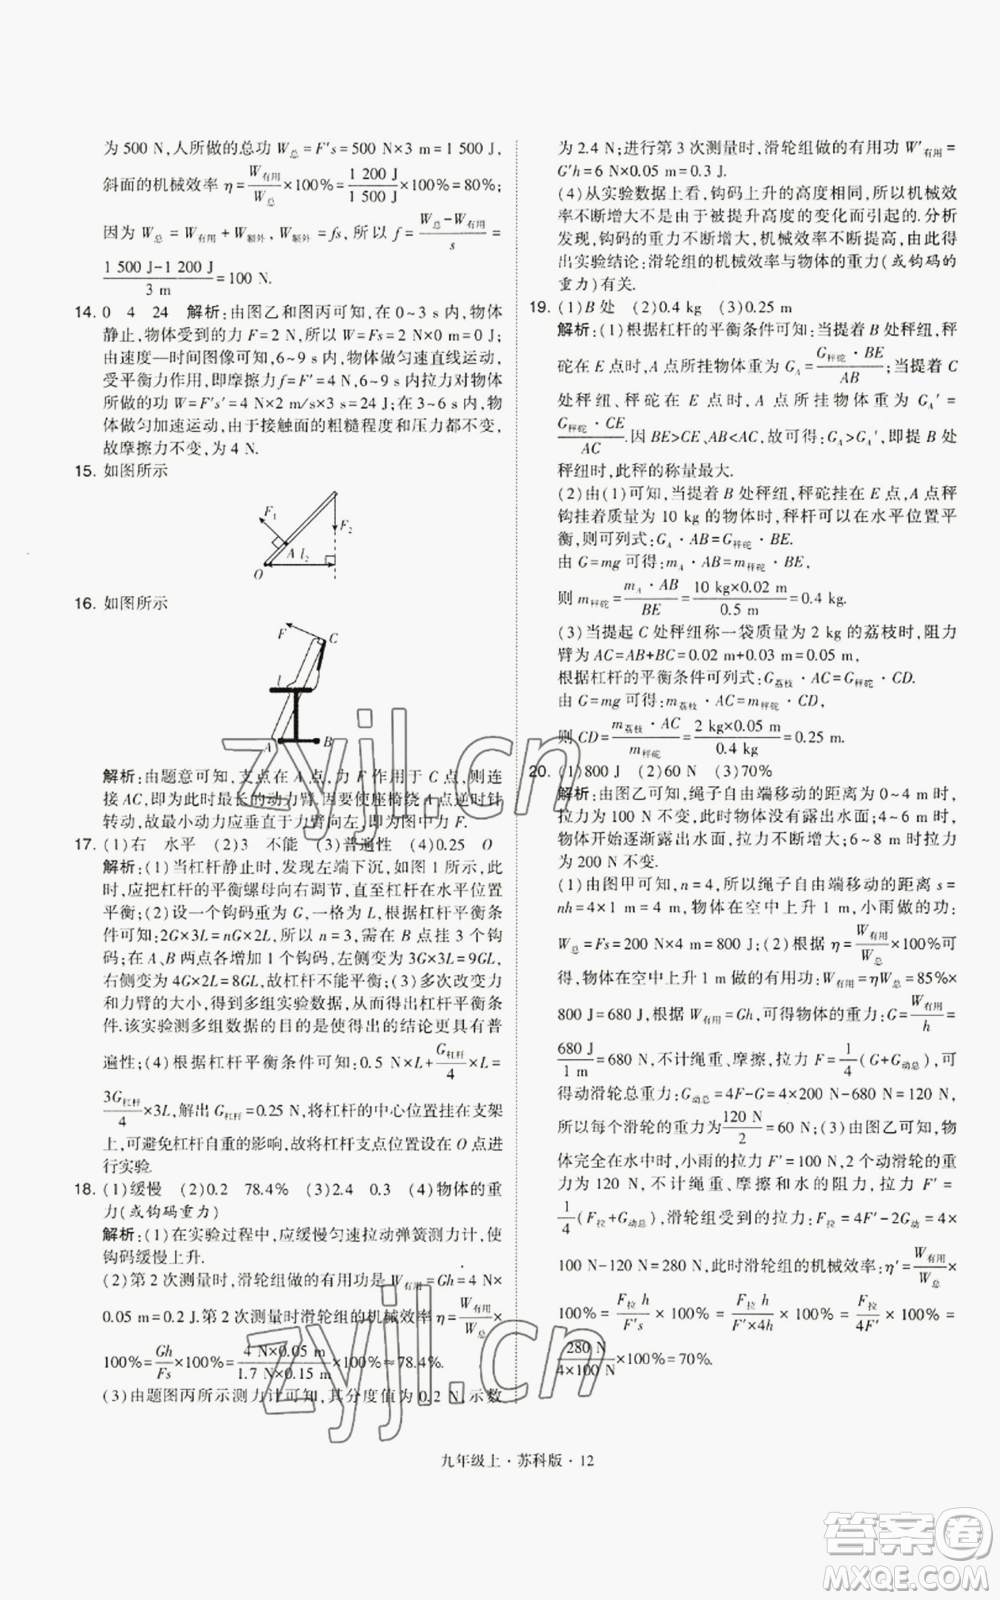 为 500 N,人所做的总功 W总=F's=500 N×3 m=1 500 J,
斜面的机械效率 η=W有用/W总×100%=1 200 J/1 500 J×100%=80%;
因为 W总=W有用+W额外,W额外=fs,所以 f=(W总-W有用)/s=
(1 500 J-1 200 J)/3 m=100 N.
14. 0 4 24 解析:由图乙和图丙可知,在 0~3 s 内,物体
静止,物体受到的力 F=2 N,所以 W=Fs=2 N×0 m=0 J;
由速度—时间图像可知,6~9 s 内,物体做匀速直线运动,
受平衡力作用,即摩擦力 f=F'=4 N,6~9 s 内拉力对物体
所做的功 W=F's'=4 N×2 m/s×3 s=24 J;在 3~6 s 内,
物体做匀加速运动,由于接触面的粗糙程度和压力都不变,
故摩擦力不变,为 4 N.
15. 如图所示
F₁
F₂
A l₂
O
16. 如图所示
F C
l
A B
解析:由题意可知,支点在 A 点,力 F 作用于 C 点,则连
接 AC,即为此时最长的动力臂,因要使座椅绕 A 点逆时针
转动,故最小动力应垂直于力臂向左,即为图中力 F.
17. (1)右 水平 (2)3 不能 (3)普遍性 (4)0.25 O
解析:(1)当杠杆静止时,发现左端下沉,如图 1 所示,此
时,应把杠杆的平衡螺母向右调节,直至杠杆在水平位置
平衡;(2)设一个钩码重为 G,一格为 L,根据杠杆平衡条
件可知:2G×3L=nG×2L,所以 n=3,需在 B 点挂 3 个钩
码;在 A、B 两点各增加 1 个钩码,左侧变为 3G×3L=9GL,
右侧变为 4G×2L=8GL,故杠杆不能平衡;(3)多次改变力
和力臂的大小,得到多组实验数据,从而得出杠杆平衡条
件.该实验测多组数据的目的是使得出的结论更具有普
遍性;(4)根据杠杆平衡条件可知:0.5 N×L+G杠杆/4×L=
3G杠杆/4×3L,解出 G杠杆=0.25 N,将杠杆的中心位置挂在支架
上,可避免杠杆自重的影响,故将杠杆支点位置设在 O 点进
行实验.
18. (1)缓慢 (2)0.2 78.4% (3)2.4 0.3 (4)物体的重
力(或钩码重力)
解析:(1)在实验过程中,应缓慢匀速拉动弹簧测力计,使
钩码缓慢上升.
(2)第 2 次测量时,滑轮组做的有用功是 W有用=Gh=4 N×
0.05 m=0.2 J.第 2 次测量时滑轮组的机械效率 η=W有用/W总×
100%=Gh/Fs×100%=4 N×0.05 m/1.7 N×0.15 m×100%≈78.4%.
(3)由题图丙所示测力计可知,其分度值为 0.2 N,示数
为 2.4 N;进行第 3 次测量时,滑轮组做的有用功 W'有用=
G'h=6 N×0.05 m=0.3 J.
(4)从实验数据上看,钩码上升的高度相同,所以机械效
率不断增大不是由于被提升高度的变化而引起的.分析
发现,钩码的重力不断增大,机械效率不断提高,由此得
出实验结论:滑轮组的机械效率与物体的重力(或钩码的
重力)有关.
19. (1)B 处 (2)0.4 kg (3)0.25 m
解析:(1)根据杠杆的平衡条件可知:当提着 B 处秤纽,秤
砣在 E 点时,A 点所挂物体重为 GA=G秤砣·BE/AB;当提着 C
处秤纽、秤砣在 E 点时,A 点所挂物体重为 GA'=
G秤砣·CE/AC.因 BE>CE、AB<AC,故 GA>GA',即提 B 处
秤纽时,此秤的称量最大.
(2)由(1)可知,当提着 B 处秤纽,秤砣挂在 E 点,A 点秤
钩挂着质量为 10 kg 的物体时,秤杆可以在水平位置平
衡,则可列式:GA·AB=G秤砣·BE.
由 G=mg 可得:mA·AB=m秤砣·BE,
则 m秤砣=mA·AB/BE=10 kg×0.02 m/0.5 m=0.4 kg.
(3)当提起 C 处秤纽称一袋质量为 2 kg 的荔枝时,阻力
臂为 AC=AB+BC=0.02 m+0.03 m=0.05 m,
根据杠杆的平衡条件可列式:G荔枝·AC=G秤砣·CD,
由 G=mg 可得:m荔枝·AC=m秤砣·CD,
则 CD=m荔枝·AC/m秤砣=2 kg×0.05 m/0.4 kg=0.25 m.
20. (1)800 J (2)60 N (3)70%
解析:由图乙可知,绳子自由端移动的距离为 0~4 m 时,
拉力为 100 N 不变,物体没有露出水面;4~6 m 时,
物体开始逐渐露出水面,拉力不断增大;6~8 m 时,拉力
为 200 N 不变.
(1)由图甲可知,n=4,所以绳子自由端移动的距离 s=
nh=4×1 m=4 m,物体在空中上升 1 m,小雨做的功:
W总=Fs=200 N×4 m=800 J;(2)根据 η=W有用/W总×100%可
得,物体在空中上升 1 m 做的有用功:W有用=ηW总=85%×
800 J=680 J,根据 W有用=Gh,可得物体的重力:G=W有用/h=
680 J/1 m=680 N,不计绳重、摩擦,拉力 F=1/4(G+G动总),可
得动滑轮总重力:G动总=4F-G=4×200 N-680 N=120 N,
所以每个滑轮的重力为 120 N/2=60 N;(3)由图乙可知,物
体完全在水中时,小雨的拉力 F'=100 N,2 个动滑轮的
重力 G动总=120 N,不计绳重、摩擦和水的阻力,拉力 F'=
1/4(F拉+G动总),滑轮组受到的拉力:F拉=4F'-G动总=4×
100 N-120 N=280 N,此时滑轮组的机械效率:η'=W有用/W总×
100%=F拉h/F's×100%=F拉h/F'×4h×100%=F拉/4F'×100%=
280 N/4×100 N×100%=70%.
九年级上·苏科版·12
zyjl.cn
zyjl.cn
答案圈
MXQE.COM